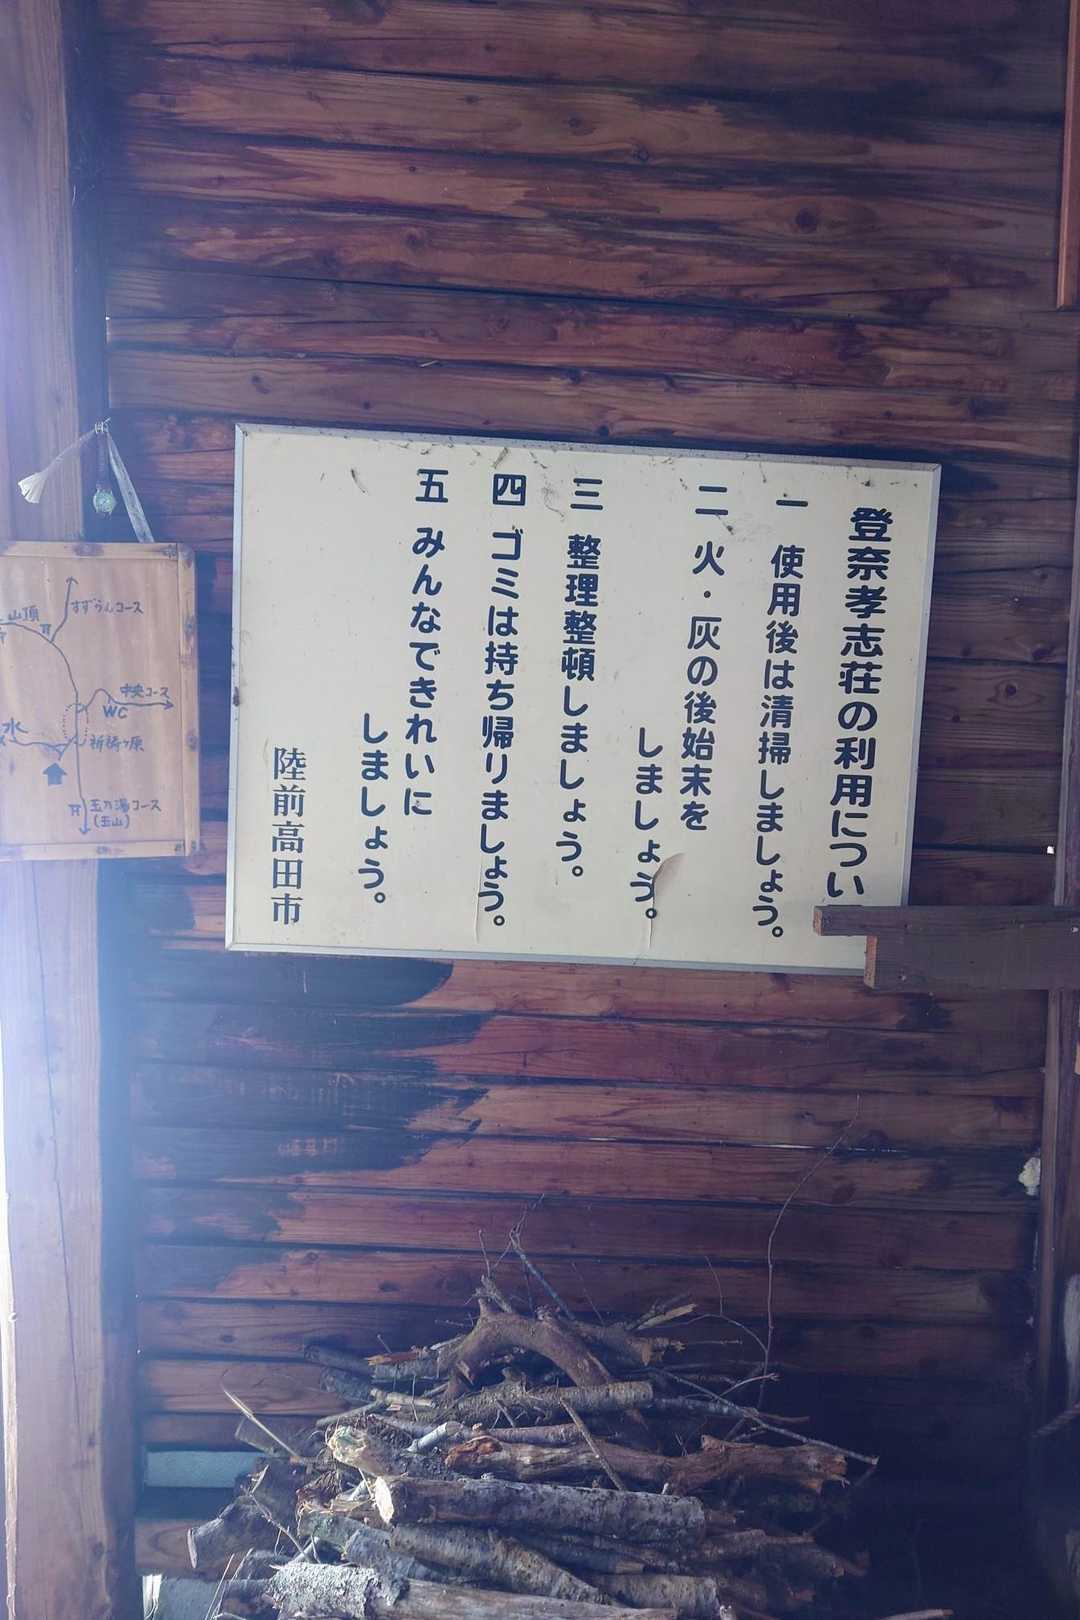 登奈孝志荘の利用につい
一 使用後は清掃しましょう。
二 火・灰の後始末を
しましょう。
三 整理整頓しましょう。
四 ゴミは持ち帰りましょう。
五 みんなできれいに
しましょう。
陸前高田市
すずらんコース
山頂
中央コース
WC
水
祈祷ヶ原
玉乃湯コース
(玉山)